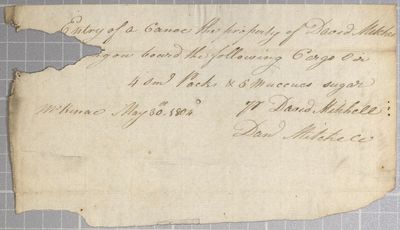 Entry of a Canoe the property of David Mitchel
upon board the following Cargo Viz
4 sml Packs & 5 Muccucs sugar
McKinac May 30. 1804 pr David Mitchell
David Mitchell